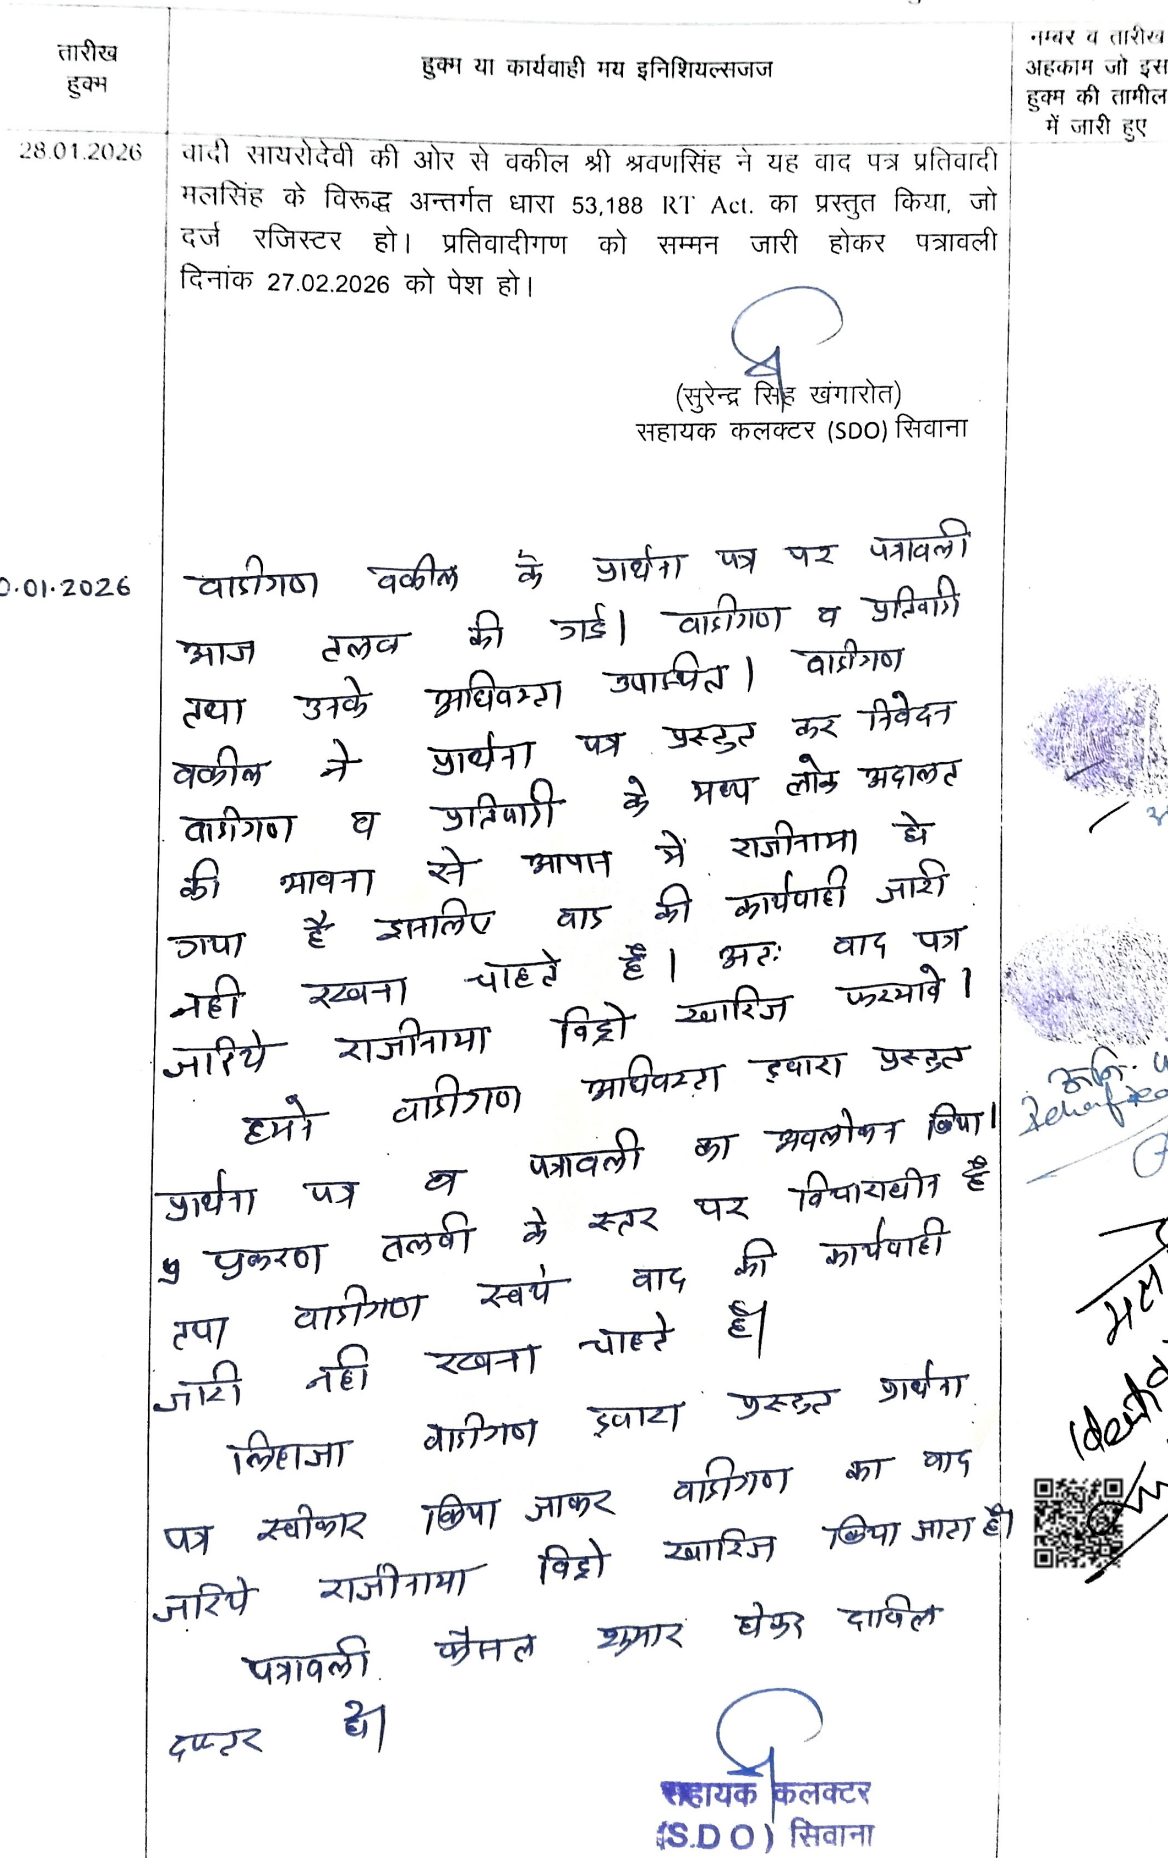 तारीख
हुक्म
हुक्म या कार्यवाही मय इनिशियल्सजज
नम्बर व तारीख
अहकाम जो इस
हुक्म की तामील
में जारी हुए
28.01.2026
वादी सायरोदेवी की ओर से वकील श्री श्रवणसिंह ने यह वाद पत्र प्रतिवादी
मलसिंह के विरूद्ध अन्तर्गत धारा 53,188 RT Act. का प्रस्तुत किया, जो
दर्ज रजिस्टर हो। प्रतिवादीगण को सम्मन जारी होकर पत्रावली
दिनांक 27.02.2026 को पेश हो।
(सुरेन्द्र सिंह खंगारोत)
सहायक कलक्टर (SDO) सिवाना
0.01.2026
वादीगण वकील के प्रार्थना पत्र पर पत्रावली
आज तलब की गई। वादीगण व प्रतिवादी
तथा उनके अधिवक्ता उपस्थित। वादीगण
वकील ने प्रार्थना पत्र प्रस्तुत कर निवेदन
वादीगण व प्रतिवादी के मध्य लोक अदालत
की भावना से आपस में राजीनामा हो
गया है इसलिए वाद की कार्यवाही जारी
नही रखना चाहते है। अतः वाद पत्र
जरिये राजीनामा विड्रो खारिज फरमावे।
हमने वादीगण अधिवक्ता द्वारा प्रस्तुत
प्रार्थना पत्र व पत्रावली का अवलोकन किया।
प्रकरण तलबी के स्तर पर विचाराधीन है
तथा वादीगण स्वयं वाद की कार्यवाही
जारी नही रखना चाहते है।
लिहाजा वादीगण द्वारा प्रस्तुत प्रार्थना
पत्र स्वीकार किया जाकर वादीगण का वाद
जरिये राजीनामा विड्रो खारिज किया जाता है।
पत्रावली फैसल शुमार होकर दाखिल
दफ्तर हो।
सहायक कलक्टर
(S.D.O) सिवाना